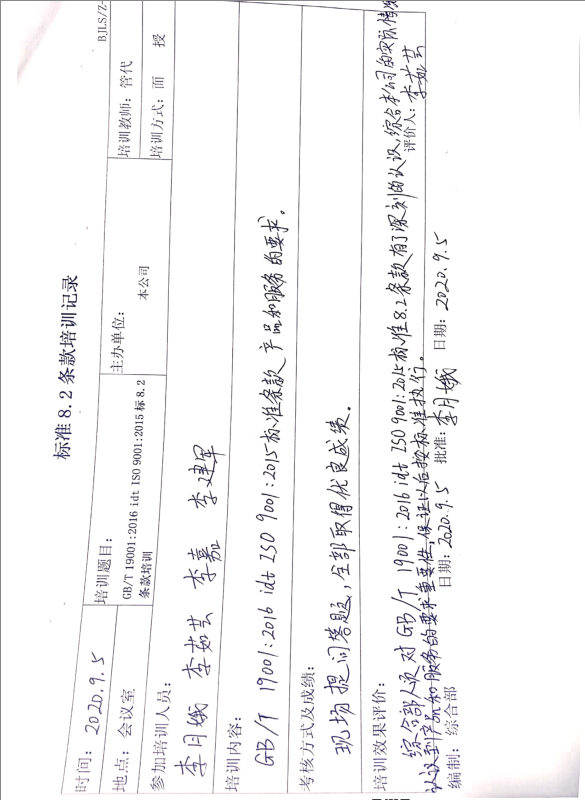 BJLS/Z-
标准8.2条款培训记录
时间：2020.9.5
培训题目：
GB/T 19001:2016 idt ISO 9001:2015标8.2
条款培训
主办单位：
本公司
培训教师：管代
地点：会议室
培训方式：面 授
参加培训人员：
李月娥 李茹芸 李嘉 李建军
培训内容：
GB/T 19001:2016 idt ISO 9001:2015标准条款 产品和服务的要求。
考核方式及成绩：
现场提问答题，全部取得优良成绩。
培训效果评价：
综合部人员对GB/T 19001:2016 idt ISO 9001:2015标准8.2条款有了深刻的认识，综合本公司的实际情况
认识到产品和服务的要求重要性，保证以后按标准执行。
评价人：李茹芸
编制：综合部 日期：2020.9.5 批准：李月娥 日期：2020.9.5